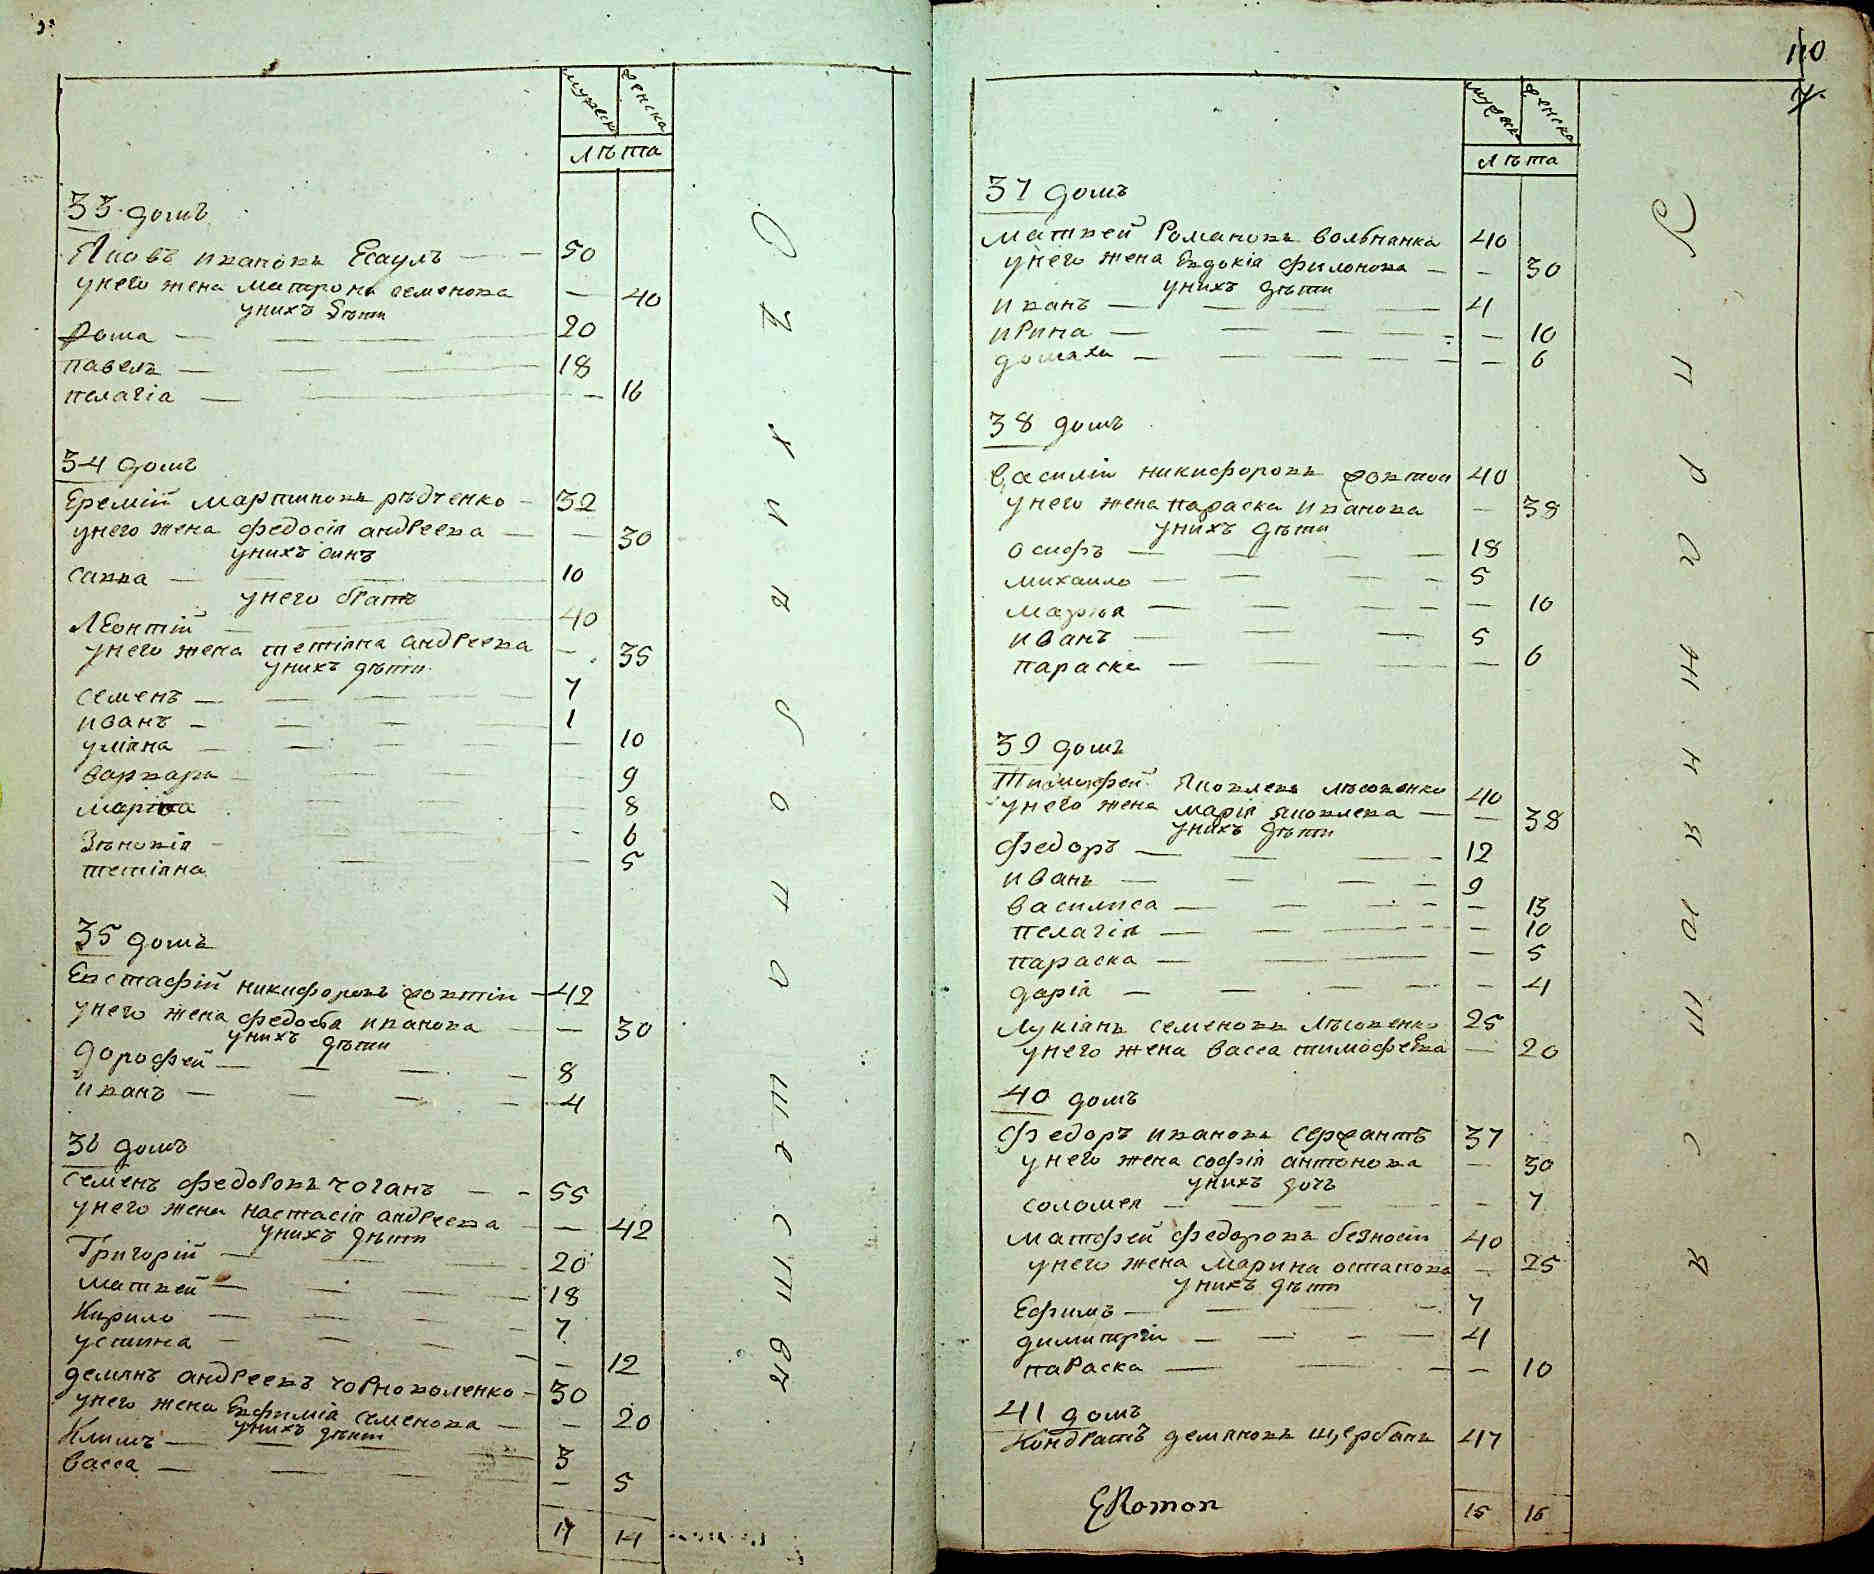 мужеск женска
лѣта
33 домъ
Яковъ ивановъ Есаулъ — 50
унего жена матрона семенова — 40
унихъ дѣти
20
павелъ — 18
пелагія — 16
34 домъ
Еремій мартиновъ рѣдченко — 32
унего жена федосія андреева — 30
унихъ синъ
савка — 10
унего братъ
Леонтій — 40
унего жена тетіяна андреева — 35
унихъ дѣти
семенъ — 7
иванъ — 1
уліяна — 10
варвара — 9
8
Зѣновія — 6
тетіяна 5
35 домъ
Евстафій никифоровъ — 42
унего жена федосія иванова — 30
унихъ дѣти
дорофей — 8
иванъ — 4
36 домъ
семенъ федоровъ чоганъ — 55
унего жена настасія андреева — 42
унихъ дѣти
Григорій — 20
матвей — 18
Кирило — 7
устина — 12
демянъ андреевъ чорноволенко — 30
унего жена Евфимія семенова — 20
унихъ дѣти
Климъ — 3
васса — 5
17 14
110
7
мужеск женска
лѣта
37 домъ
матвей Романовъ вольнянка 40
унего жена Евдокія филонова — 30
унихъ дѣти
иванъ — 4
ирина — 10
домаха — 6
38 домъ
василій никифоровъ 40
унего жена параска иванова — 38
унихъ дѣти
осифъ — 18
михаило — 5
10
иванъ — 5
параска — 6
39 домъ
Тимофей Яковлевъ лѣсовенко 40
унего жена марія яковлева — 38
унихъ дѣти
федоръ — 12
иванъ — 9
василиса — 13
пелагія — 10
параска — 5
дарія — 4
Лукіянъ семеновъ лѣсовенко 25
унего жена васса тимофеева — 20
40 домъ
федоръ ивановъ сержантъ 37
унего жена софія антонова — 30
унихъ дочь
соломея — 7
матфей федоровъ безносій 40
унего жена марина остапова — 25
унихъ дѣти
Ефимъ — 7
димитрій — 4
параска — 10
41 домъ
Кондратъ демяновъ щербакъ 47
15 16